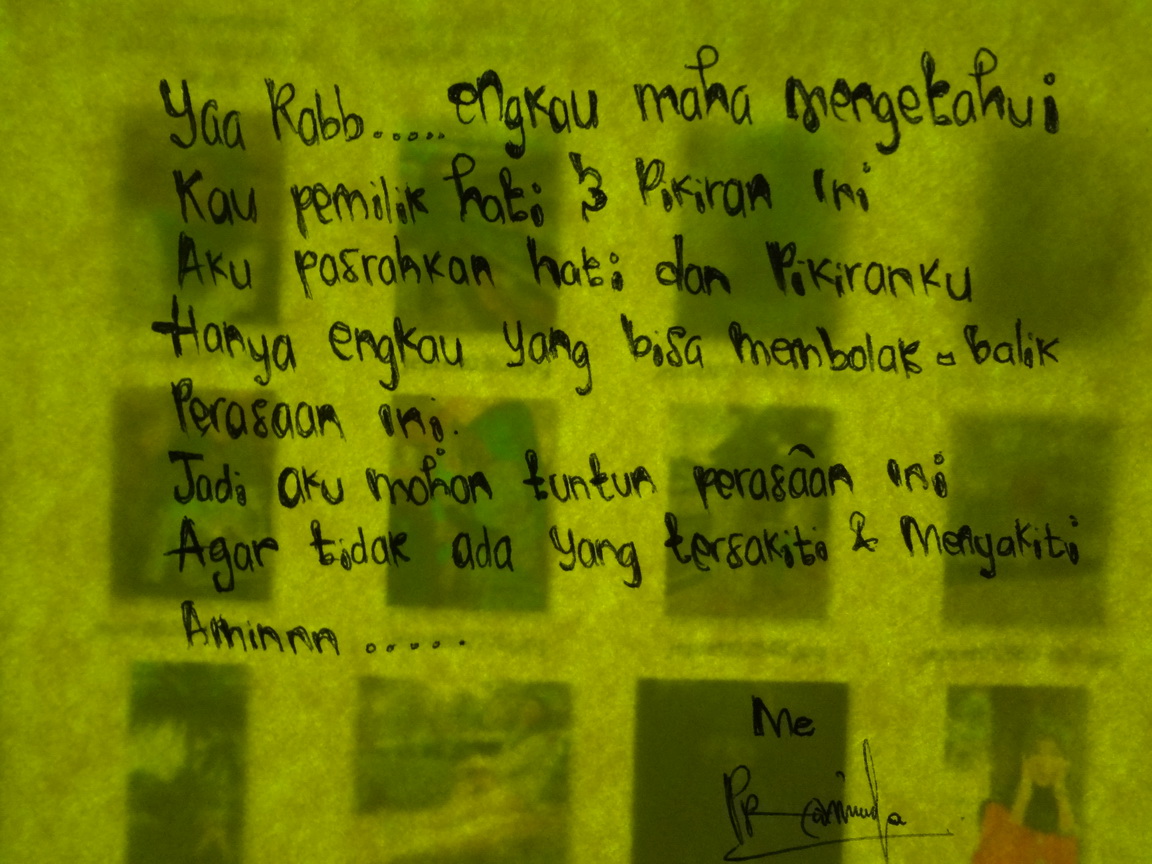 Yaa Rabb..... engkau maha mengetahui
Kau pemilik hati & Pikiran ini
Aku pasrahkan hati dan Pikiranku
Hanya engkau yang bisa membolak - balik
Perasaan ini.
Jadi aku mohon tuntun perasaan ini
Agar tidak ada yang tersakiti & Menyakiti
Aminnn .....
Me